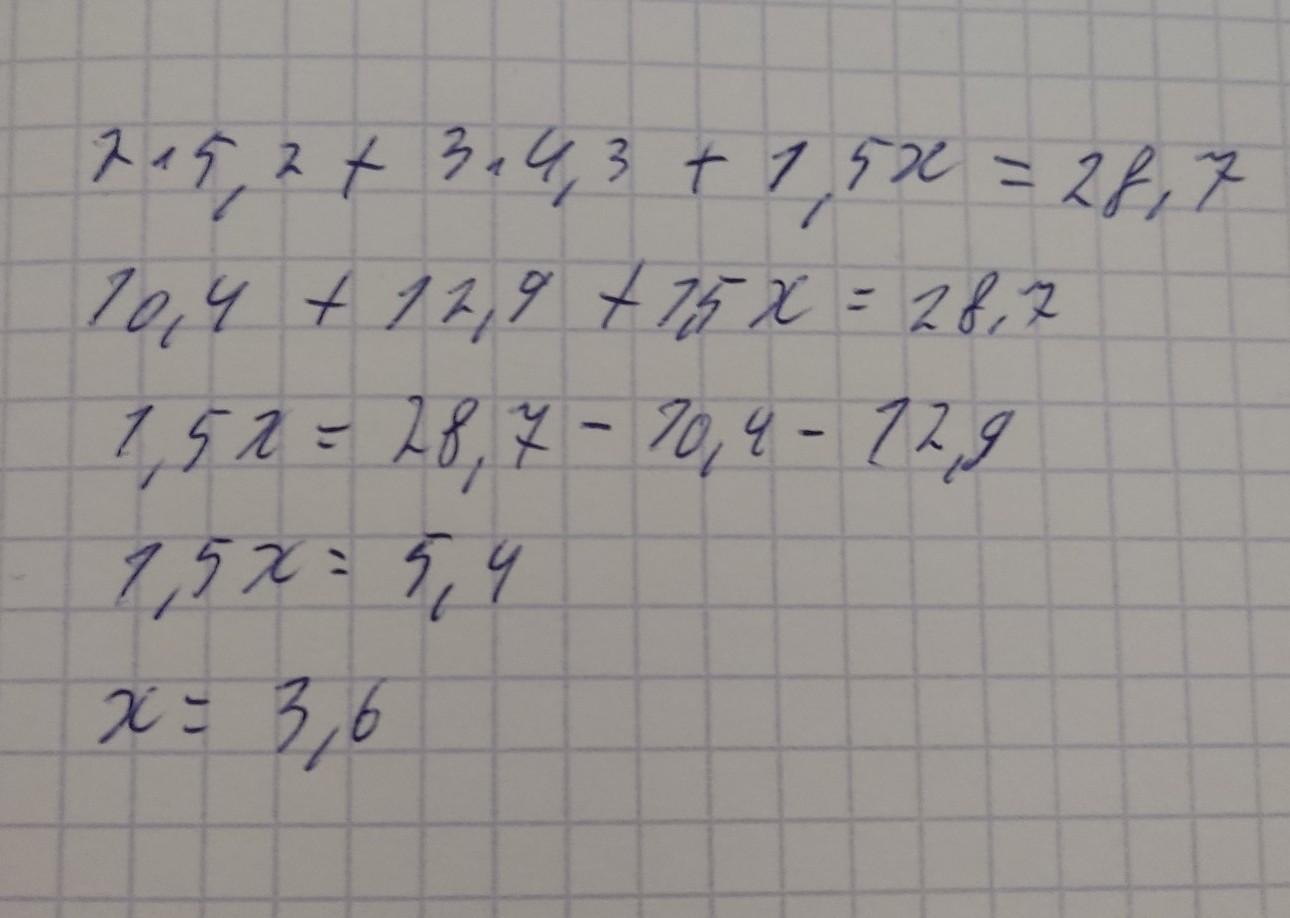 2·5,2 + 3·4,3 + 1,5x = 28,7
10,4 + 12,9 + 1,5x = 28,7
1,5x = 28,7 - 10,4 - 12,9
1,5x = 5,4
x = 3,6